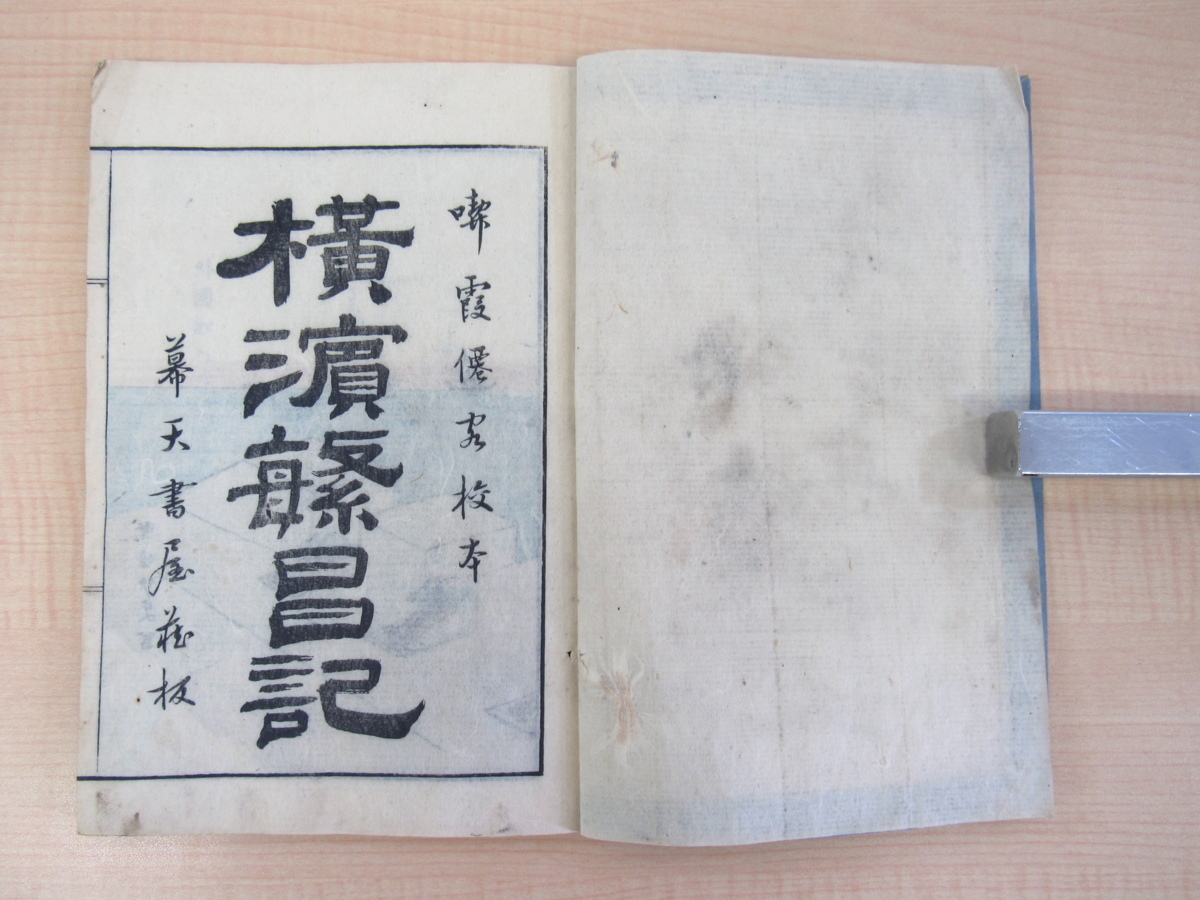 喫霞僊客校本
橫濱繁昌記
幕天書屋蔵板